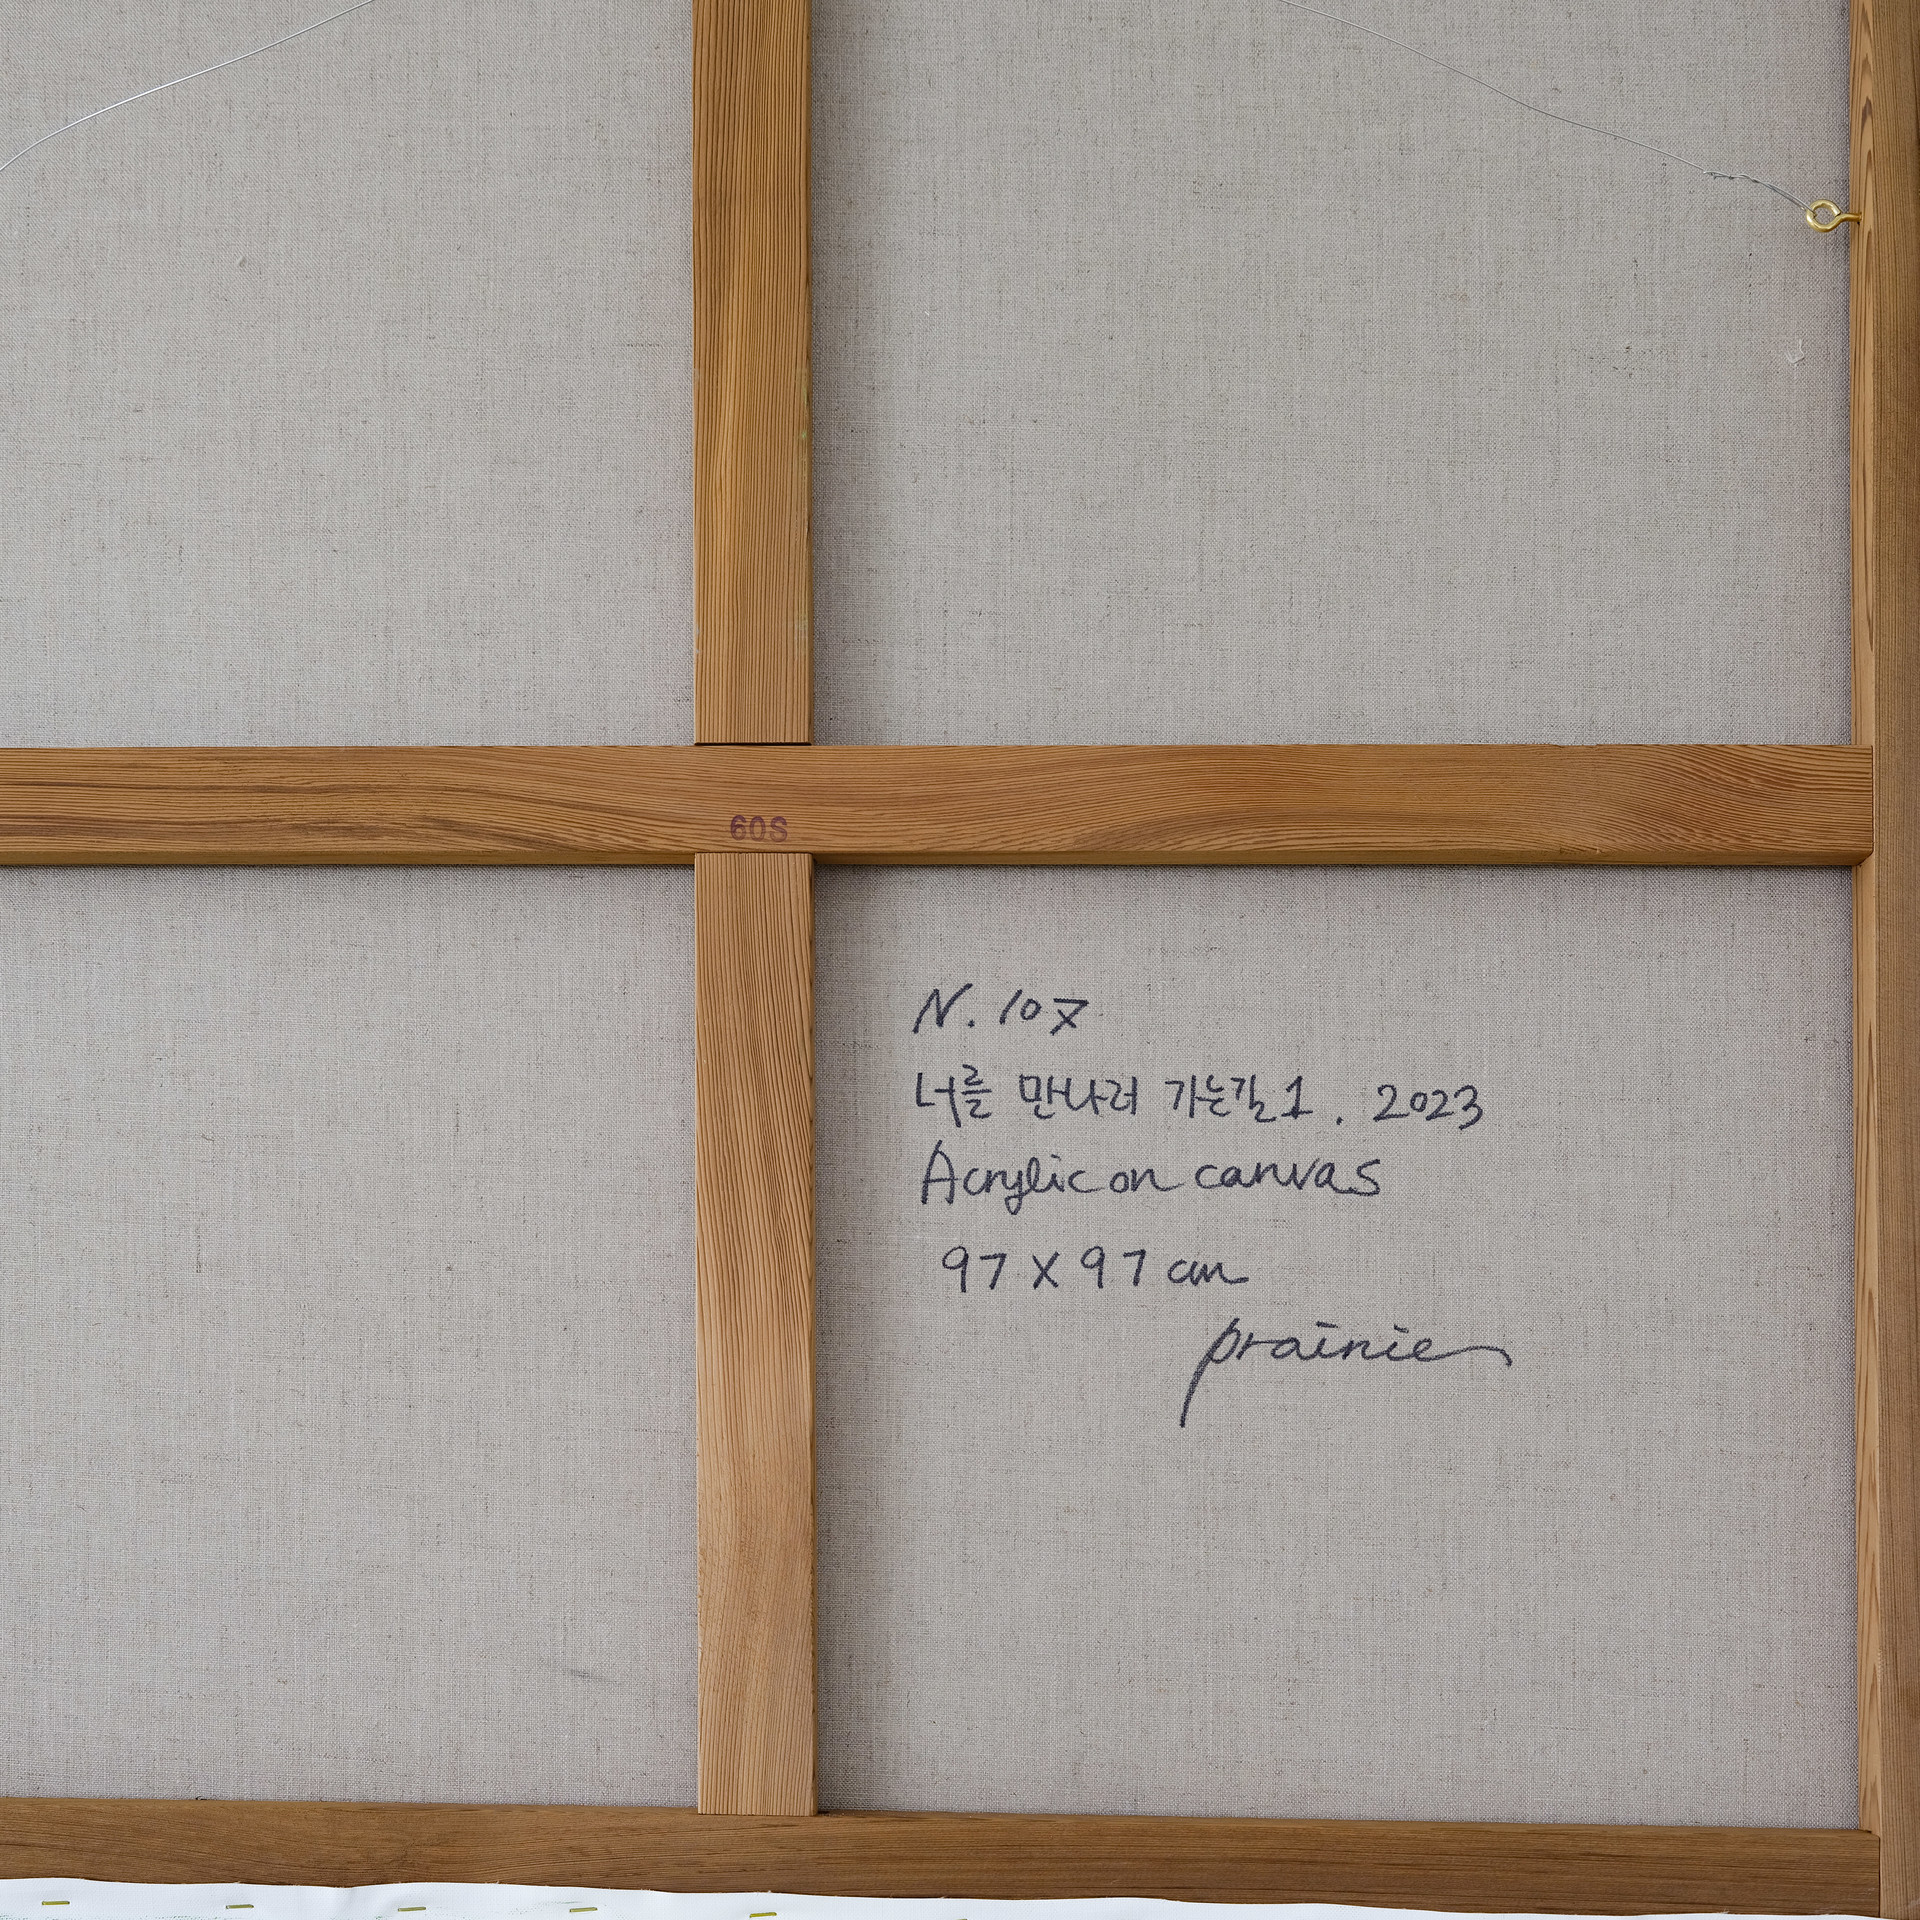 60S
N. 107
너를 만나러 가는길 1. 2023
Acrylic on canvas
97 X 97 cm
prainie